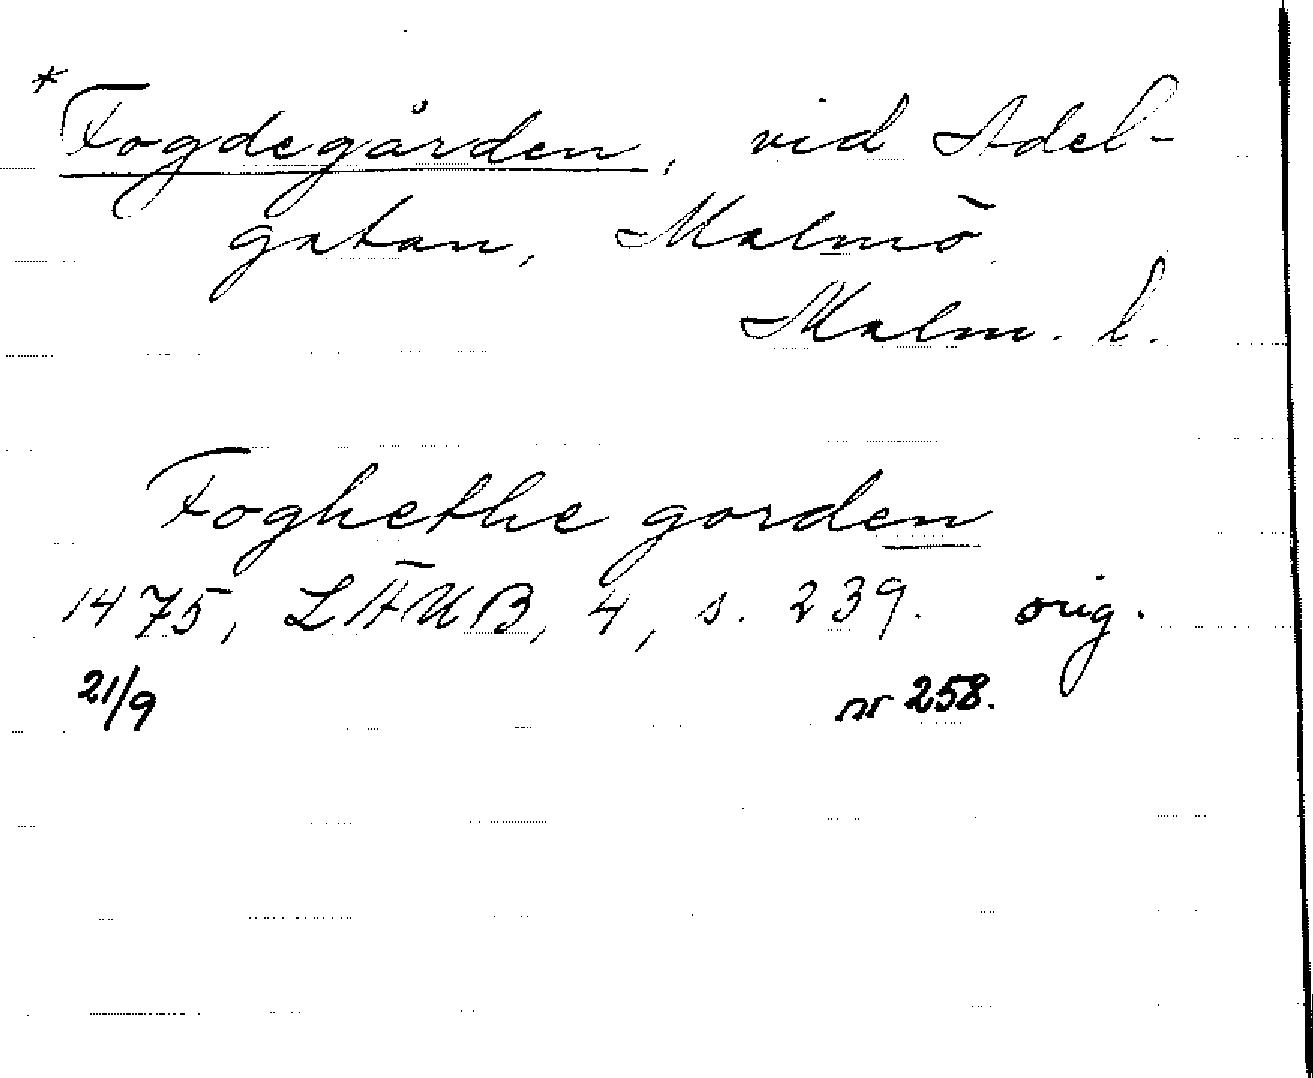 * Fogdegården, vid Adel-
gatan, Malmö.
Malm. h.
Foghethe gorden
1475, LÄUB, 4, s. 239. orig.
21/9 nr 258.